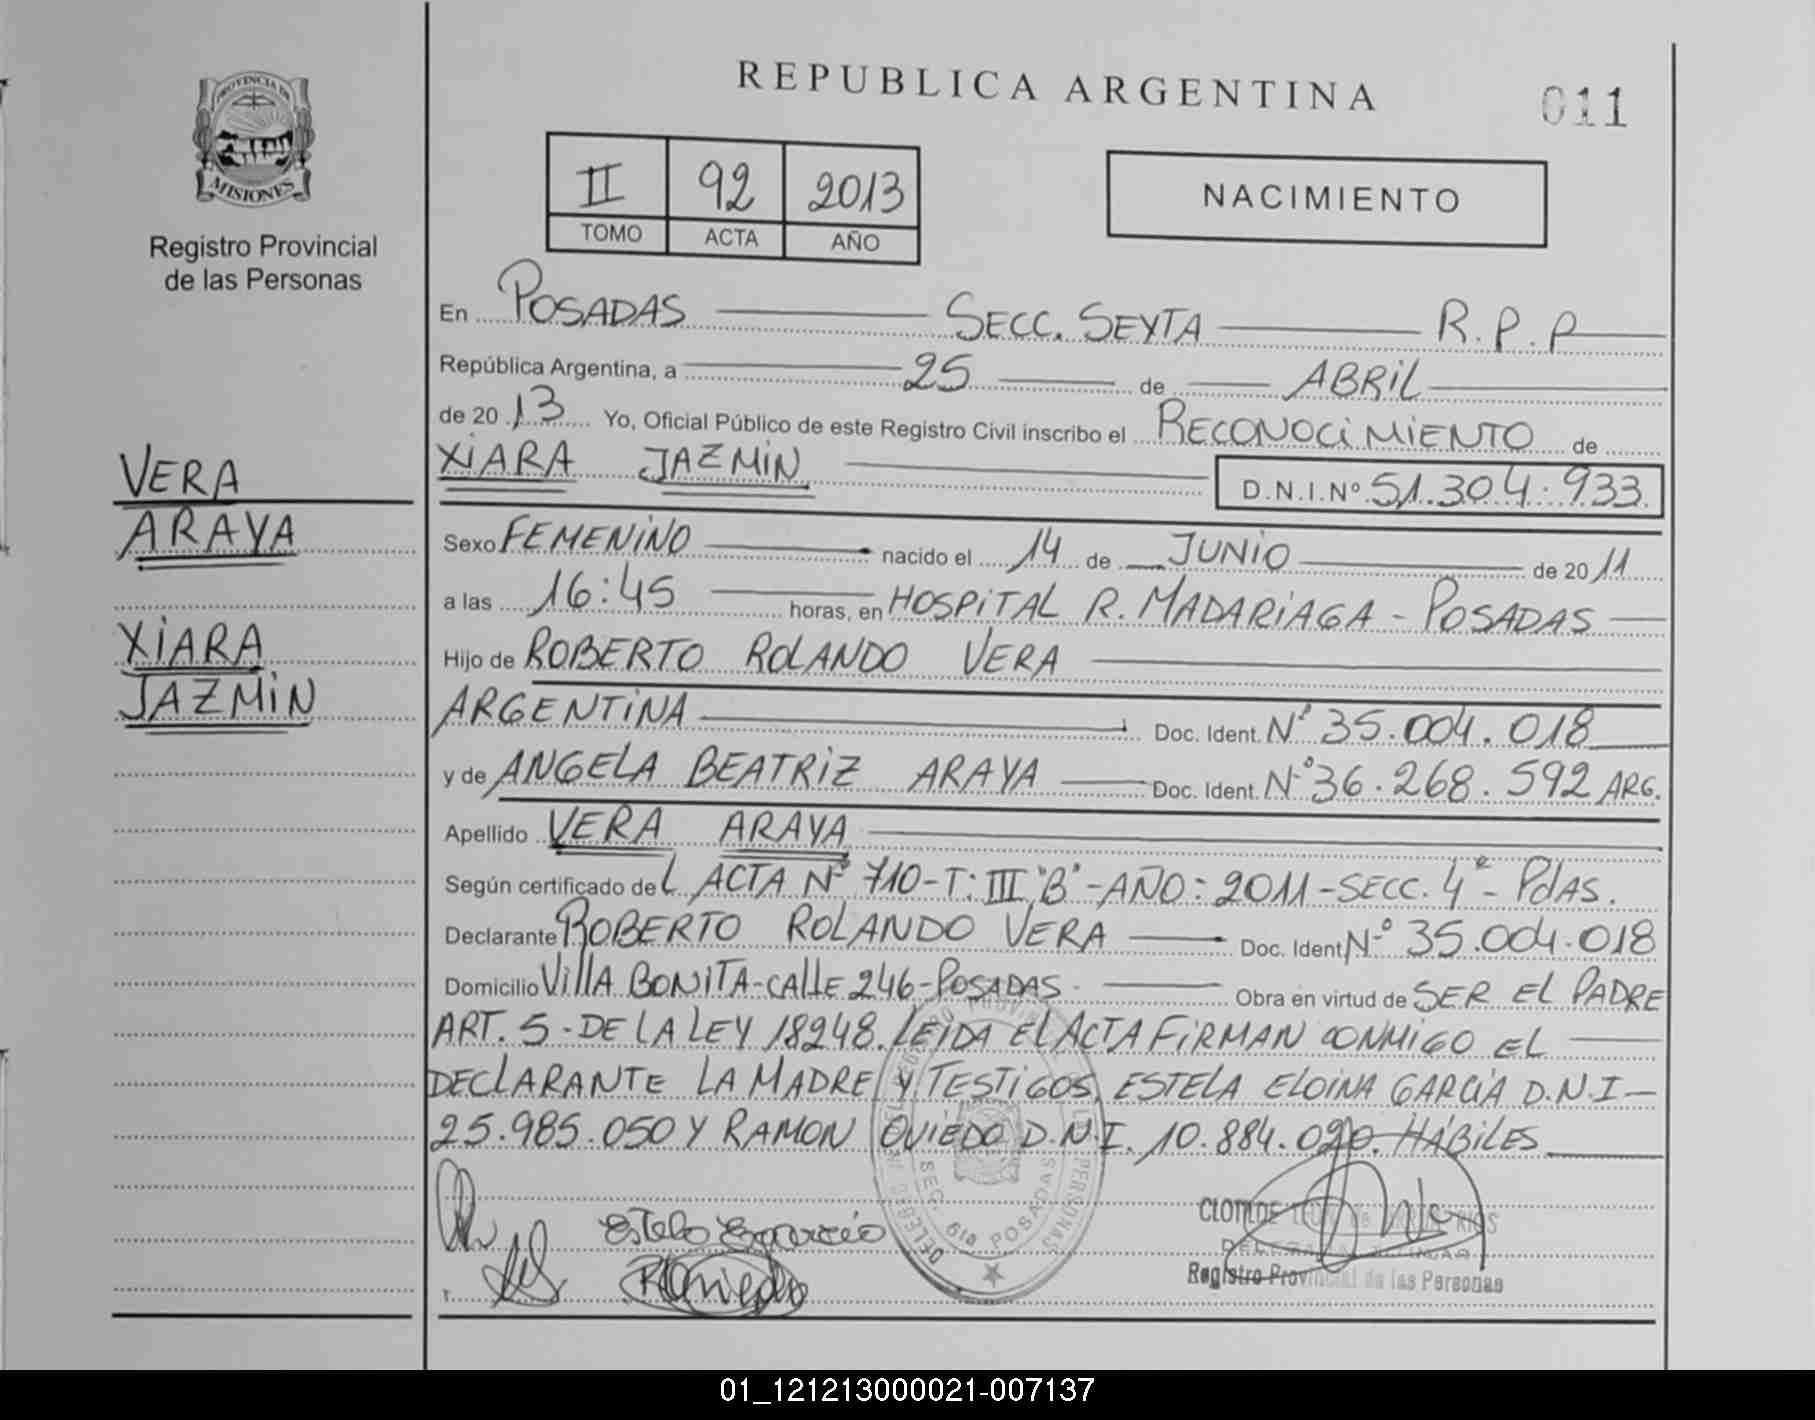 PROVINCIA DE
MISIONES
Registro Provincial
de las Personas
VERA
ARAYA
XIARA
JAZMIN
REPUBLICA ARGENTINA
011
II 92 2013
TOMO ACTA AÑO
NACIMIENTO
En POSADAS SECC. SEXTA R.P.P
República Argentina, a 25 de ABRIL
de 2013 Yo, Oficial Público de este Registro Civil inscribo el RECONOCIMIENTO de
XIARA JAZMIN D.N.I.Nº 51.304.933
Sexo FEMENINO nacido el 14 de JUNIO de 2011
a las 16:45 horas, en HOSPITAL R. MADARIAGA - POSADAS
Hijo de ROBERTO ROLANDO VERA
ARGENTINA Doc. Ident. Nº 35.004.018
y de ANGELA BEATRIZ ARAYA Doc. Ident. Nº 36.268.592 ARG.
Apellido VERA ARAYA
Según certificado del ACTA Nº 710-T:III"B"-AÑO:2011-SECC.4ª-PdAS.
Declarante ROBERTO ROLANDO VERA Doc. Ident. Nº 35.004.018
Domicilio VILLA BONITA-CALLE 246-POSADAS. Obra en virtud de SER EL PADRE
ART. 5 - DE LA LEY 18248. LEIDA EL ACTA FIRMAN CONMIGO EL
DECLARANTE LA MADRE Y TESTIGOS, ESTELA ELOINA GARCIA D.N.I
25.985.050 Y RAMON OVIEDO D.N.I. 10.884.020. HÁBILES
SEC. 6ta POSADAS
CLOTILDE
Registro Provincial de las Personas
01_121213000021-007137